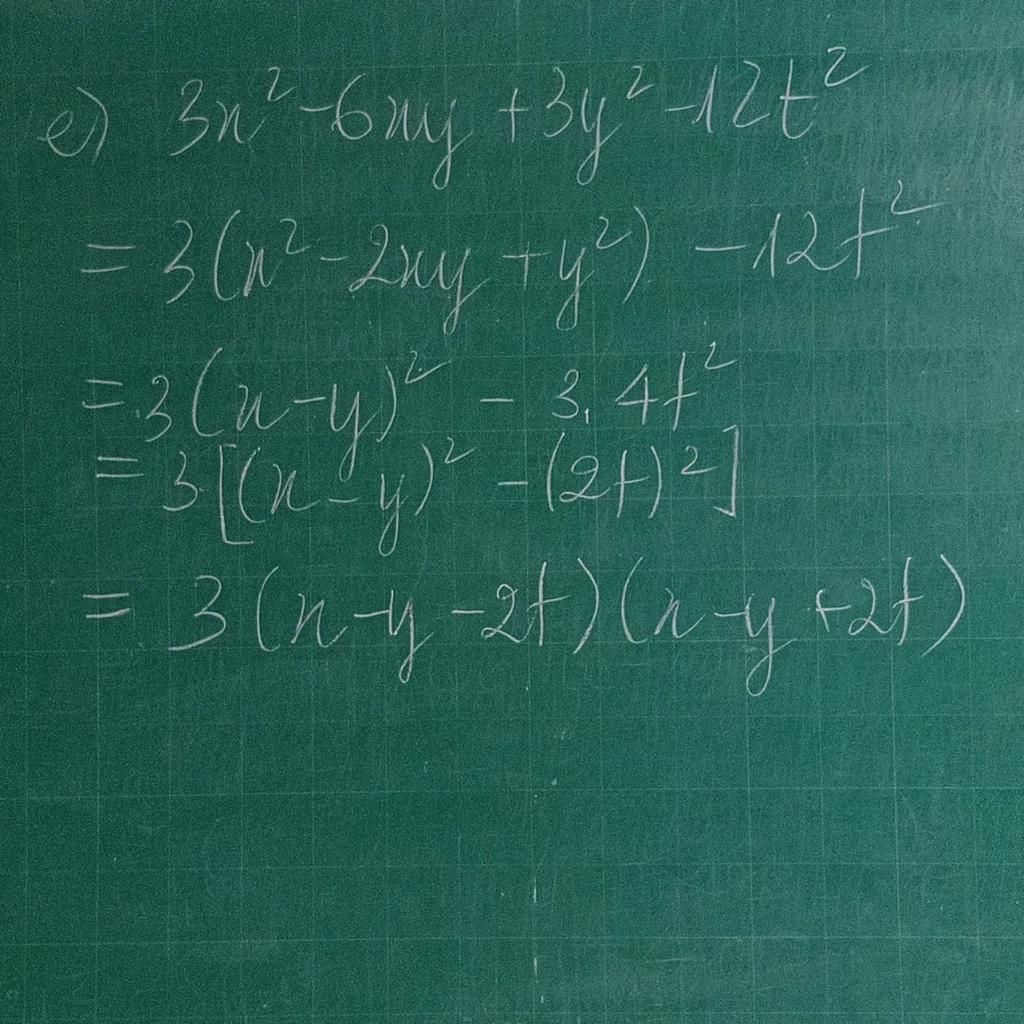 e) 3x² - 6xy + 3y² - 12t²
= 3(x² - 2xy + y²) - 12t²
= 3(x - y)² - 3.4t²
= 3[(x - y)² - (2t)²]
= 3(x - y - 2t)(x - y + 2t)